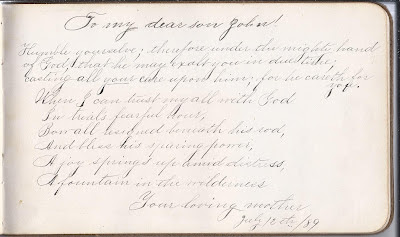 To my dear son John!
Humble yourselve, therefore under the mighty hand
of God, that he may exalt you in due time;
casting all your care upon him; for he careth for
you.
When I can trust my all with God
In trials fearful hour,
Bow all resigned beneath his rod,
And bless his sparing power,
A joy springs up amid distress,
A fountain in the wilderness
Your loving mother
July 12 /89